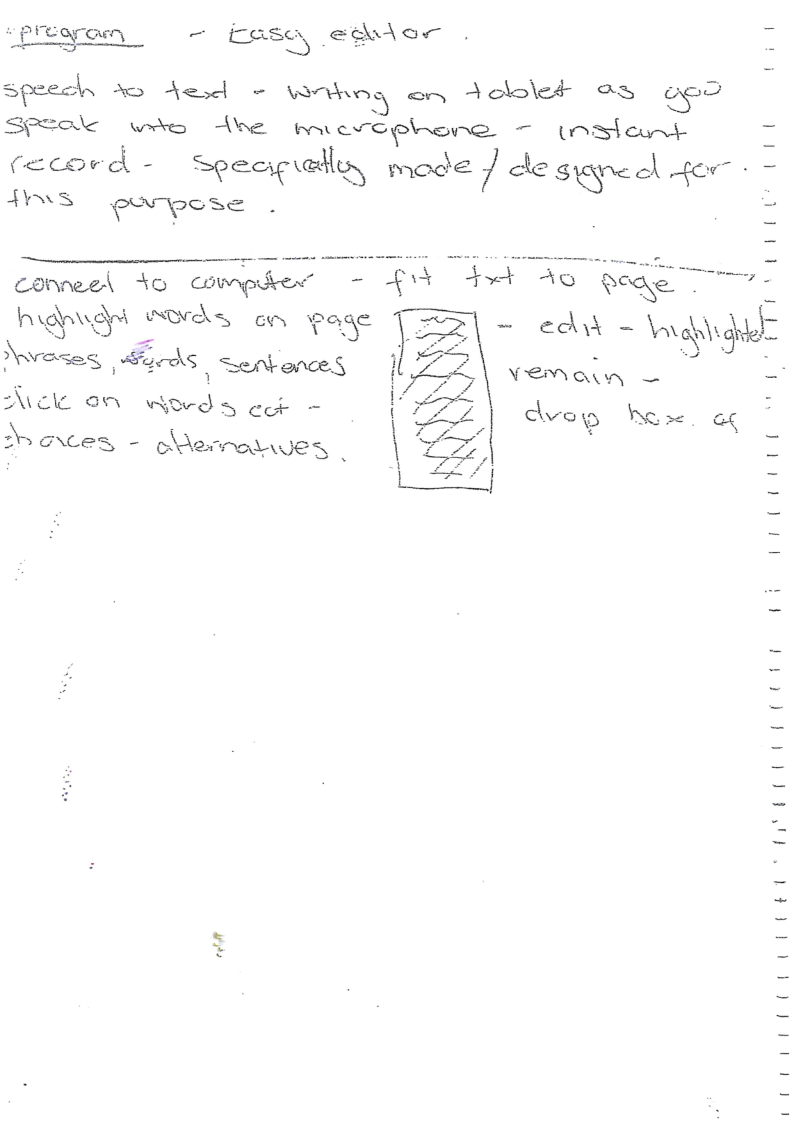 program - Easy editor.
speech to text - writing on tablet as you
speak into the microphone - instant
record - specifically made / designed for.
this purpose.
connect to computer - fit txt to page.
highlight words on page - edit - highlighted
phrases, words, sentences remain -
click on words ect - drop box of
choices - alternatives.